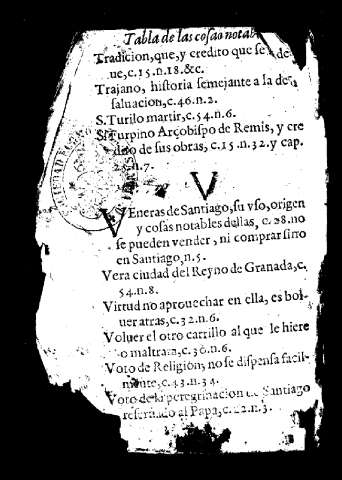 Tabla de las cosas notab
Tradicion, que, y credito que se de-
ue, c. 15. n. 18. &c.
Trajano, historia semejante a la de
saluacion, c. 46. n. 2.
S. Turilo martir, c. 54. n. 6.
S. Turpino Arçobispo de Remis, y cre
dito de sus obras, c. 15. n. 32. y cap.
n. 7.
V
VEneras de Santiago, su vso, origen
y cosas notables dellas, c. 28. no
se pueden vender, ni comprar sino
en Santiago, n. 5.
Vera ciudad del Reyno de Granada, c.
54. n. 8.
Virtud no aprouechar en ella, es bol-
uer atras, c. 32. n. 6.
Voluer el otro carrillo al que le hiere
o maltrata, c. 36. n. 6.
Voto de Religion, no se dispensa facil-
mente, c. 43. n. 34.
Voto de la peregrinacion de Santiago
reseruado al Papa, c. 22. n. 3.